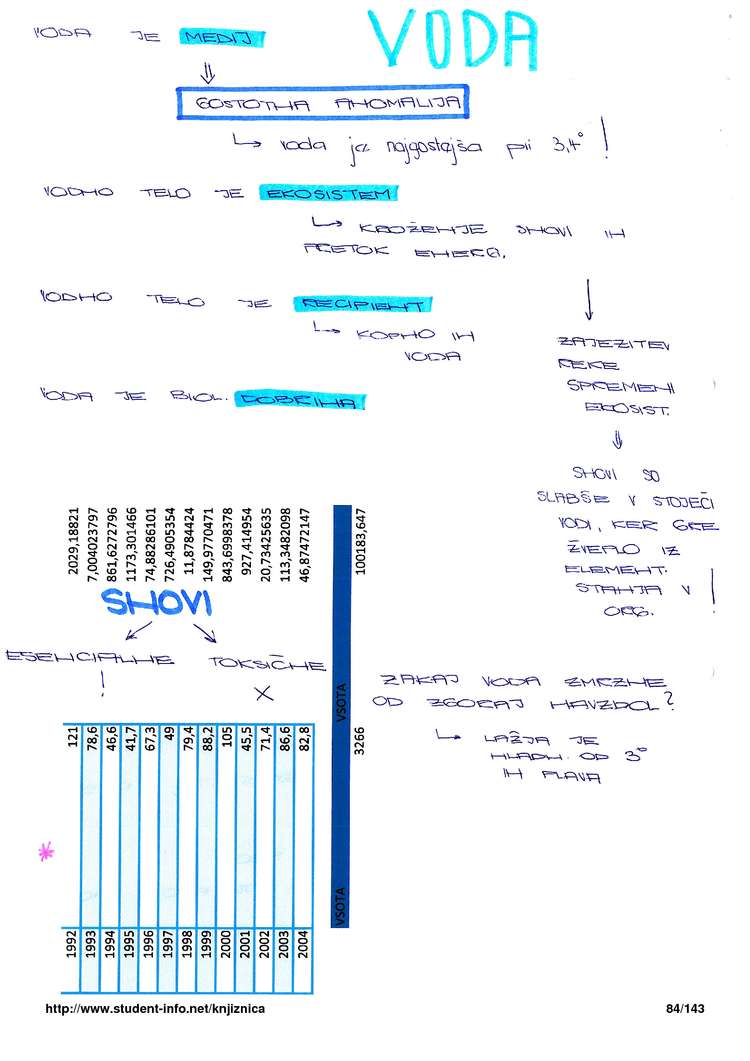 VODA
VODA JE MEDIJ
⇓
GOSTOTNA ANOMALIJA
↳ voda je najgostejša pri 3,4° !
VODNO TELO JE EKOSISTEM
↳ KROŽENJE SNOVI IN
PRETOK ENERG.
↓
ZAJEZITEV
REKE
SPREMENI
EKOSIST.
⇓
SNOVI SO
SLABŠE V STOJEČI
VODI, KER GRE
ŽVEPLO IZ
ELEMENT.
STANJA V
ORG. !
VODNO TELO JE RECIPIENT
↳ KOPNO IN
VODA
VODA JE BIOL. DOBRINA
2029,18821
7,004023797
861,6272796
1173,301466
74,88286101
726,4905354
11,8784424
149,9770471
843,6998378
927,414954
20,73425635
113,3482098
46,87472147
100183,647
SNOVI
ESENCIALNE
!
TOKSIČNE
X
ZAKAJ VODA ZMRZNE
OD ZGORAJ NAVZDOL?
↳ LAŽJA JE
HLADN. OD 3°
IN PLAVA
1992 121
1993 78,6
1994 46,6
1995 41,7
1996 67,3
1997 49
1998 79,4
1999 88,2
2000 105
2001 45,5
2002 71,4
2003 86,6
2004 82,8
VSOTA VSOTA
3266
*
http://www.student-info.net/knjiznica
84/143